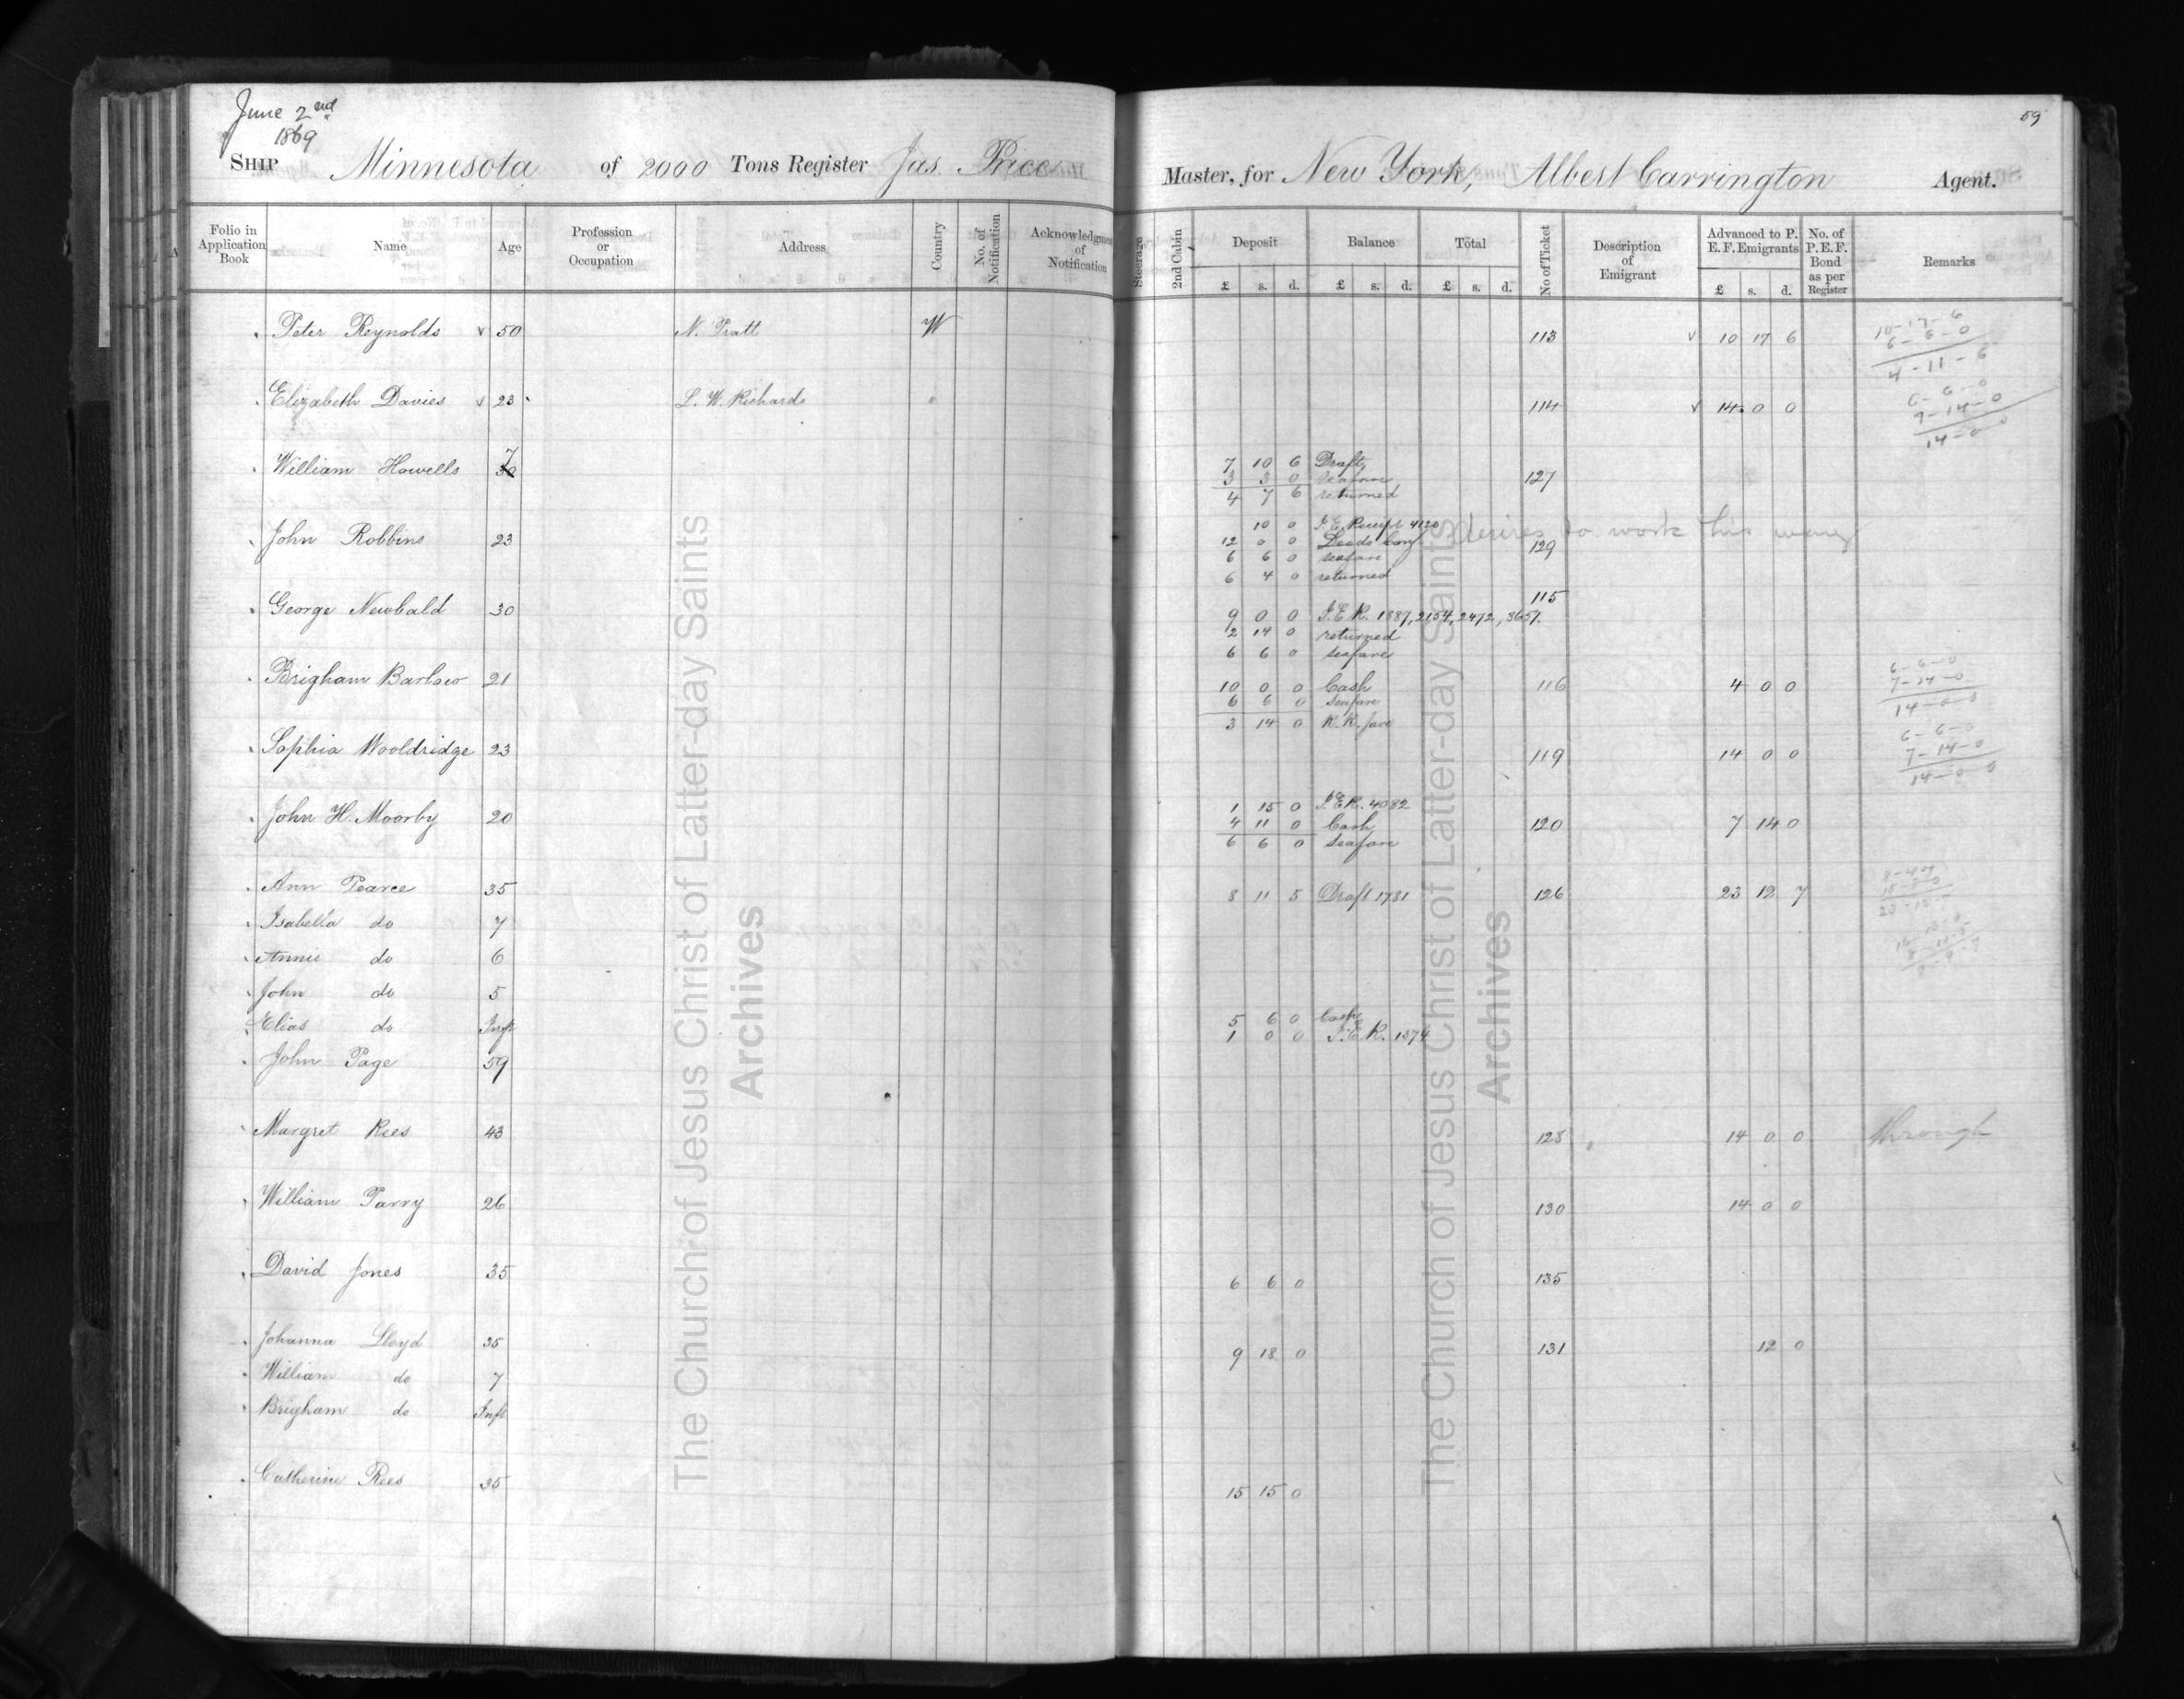 June 2nd
1869
59
SHIP Minnesota of 2000 Tons Register Jas. Price Master, for New York, Albert Carrington Agent.
Folio in Application Book Name Age Profession or Occupation Address Country No. of Notification Acknowledgment of Notification Steerage 2nd Cabin Deposit Balance Total No of Ticket Description of Emigrant Advanced to P. E. F. Emigrants No. of P.E.F. Bond as per Register Remarks
£ s. d. £ s. d. £ s. d. £ s. d.
Peter Reynolds v 50 N. Pratt W 113 v 10 17 6 10-17-6
6-6-0
4-11-6
Elizabeth Davies v 23 L. W. Richards " 114 v 14 0 0 6-6-0
7-14-0
14-0-0
William Howells 7 30 7 10 6 Draft 127
3 3 0 seafare
4 7 6 returned
John Robbins 23 10 0 I.E. Receipt 4120 desires to work this way
12 0 0 Leeds Conf 129
6 6 0 seafare
6 4 0 returned
George Newbald 30 115
9 0 0 I.E.R. 1887, 2154, 2472, 3657.
2 14 0 returned
6 6 0 seafare
Brigham Barlow 21 10 0 0 Cash 116 4 0 0 6-6-0
6 6 0 seafare 7-14-0
3 14 0 R.R. fare 14-0-0
Sophia Wooldridge 23 119 14 0 0 6-6-0
7-14-0
14-0-0
John H. Moorby 20 1 15 0 I.E.R. 4082
4 11 0 Cash 120 7 14 0
6 6 0 seafare
Ann Pearce 35 8 11 5 Draft 1781 126 23 12 7
Isabella do 7
Annie do 6
John do 5
Elias do Inft 5 6 0 Cash
1 0 0 I.E.R. 1374
John Page 59
Margret Rees 43 128 14 0 0 through
William Parry 26 130 14 0 0
David Jones 35 6 6 0 135
Johanna Lloyd 35 9 18 0 131 12 0
William do 7
Brigham do Inft
Catherine Rees 35 15 15 0
The Church of Jesus Christ of Latter-day Saints
Archives
The Church of Jesus Christ of Latter-day Saints
Archives